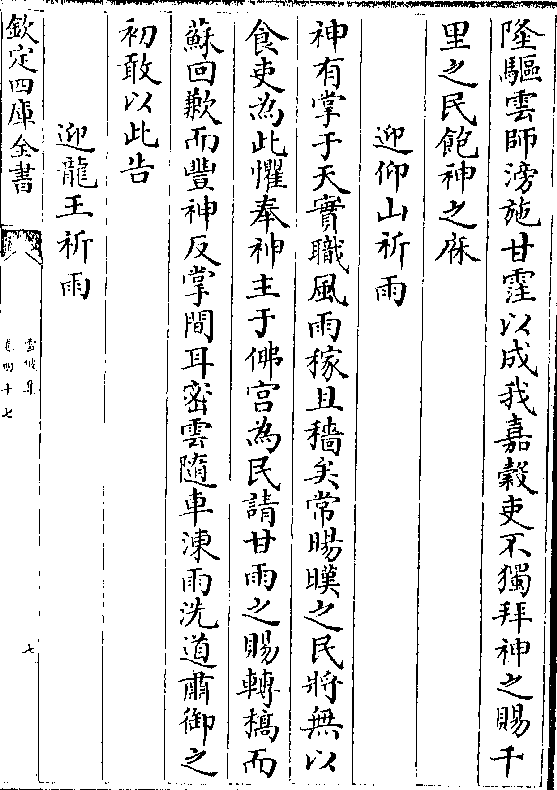 隆驅雲師滂施甘霔以成我嘉穀吏不獨拜神之賜千
里之民飽神之庥
迎仰山祈雨
神有掌于天實職風雨稼且穡矣常暘暵之民將無以
食吏為此懼奉神主于佛宮為民請甘雨之賜轉槁而
蘇回歉而豐神反掌間耳密雲隨車涷雨洗道肅御之
初敢以此告
迎龍王祈雨
欽定四庫全書
雪坡集
卷四十七
七